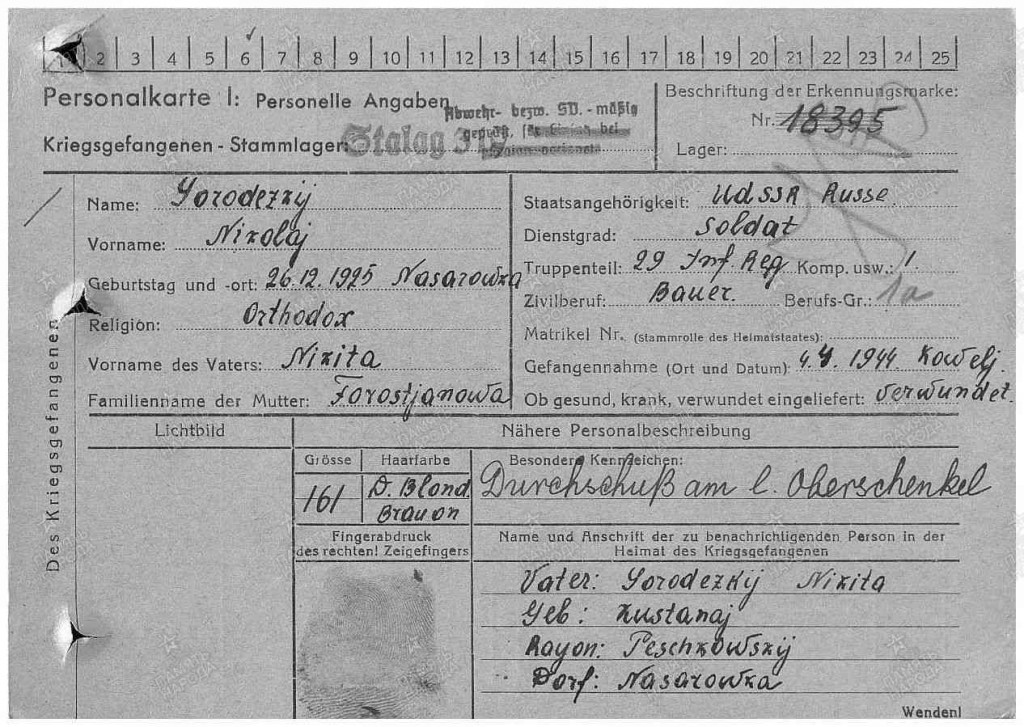 1 2 3 4 5 6 7 8 9 10 11 12 13 14 15 16 17 18 19 20 21 22 23 24 25
Personalkarte I: Personelle Angaben
Kriegsgefangenen-Stammlager: Stalag 3
Abwehr- bezw. SD.-mäßig
geprüft, für bei
Beschriftung der Erkennungsmarke:
Nr. 18395
Lager:
Des Kriegsgefangenen
Name: Gorodezkij
Vorname: Nikolaj
Geburtstag und -ort: 26.12.1925 Nasarowka
Religion: Orthodox
Vorname des Vaters: Nikita
Familienname der Mutter: Forostjanowa
Staatsangehörigkeit: UdSSR Russe.
Dienstgrad: Soldat
Truppenteil: 29 Inf Reg Komp. usw.: 1.
Zivilberuf: Bauer. Berufs-Gr.: 1a
Matrikel Nr. (Stammrolle des Heimatstaates):
Gefangennahme (Ort und Datum): 4.4.1944 Kowelj.
Ob gesund, krank, verwundet eingeliefert: verwundet.
Lichtbild
Nähere Personalbeschreibung
Grösse Haarfarbe
161 D. Blond
Brauon
Besondere Kennzeichen:
Durchschuß am l. Oberschenkel
Fingerabdruck
des rechten! Zeigefingers
Name und Anschrift der zu benachrichtigenden Person in der
Heimat des Kriegsgefangenen
Vater: Gorodezkij Nikita
Geb: Kustanaj
Rayon: Peschkowskij
Dorf: Nasarowka
Wenden!